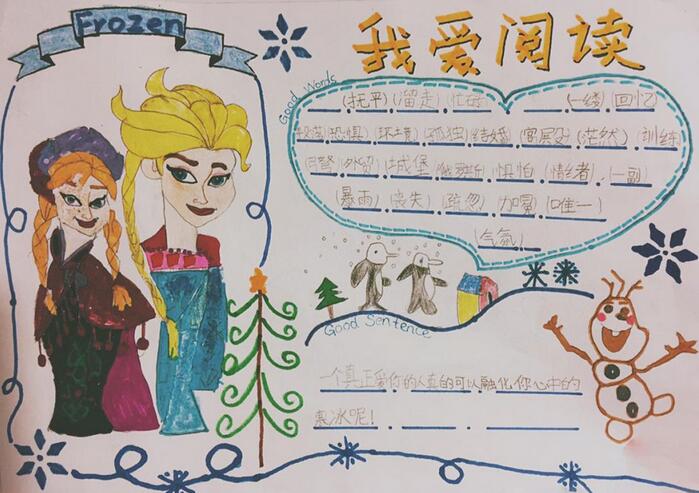 Frozen
我爱阅读
Good Words
(抚平)(溜走)(忙碌) (一缕)(回忆)
(恐惧)(环境)(孤独)(结婚)(茫然)(训练)
(外贸)(城堡)(惧怕)(一副)
(暴雨)(丧失)(疏忽)(加冕)(唯一)
(气氛)
Good Sentence
一个真正爱你的人真的可以融化你心中的
寒冰呢!